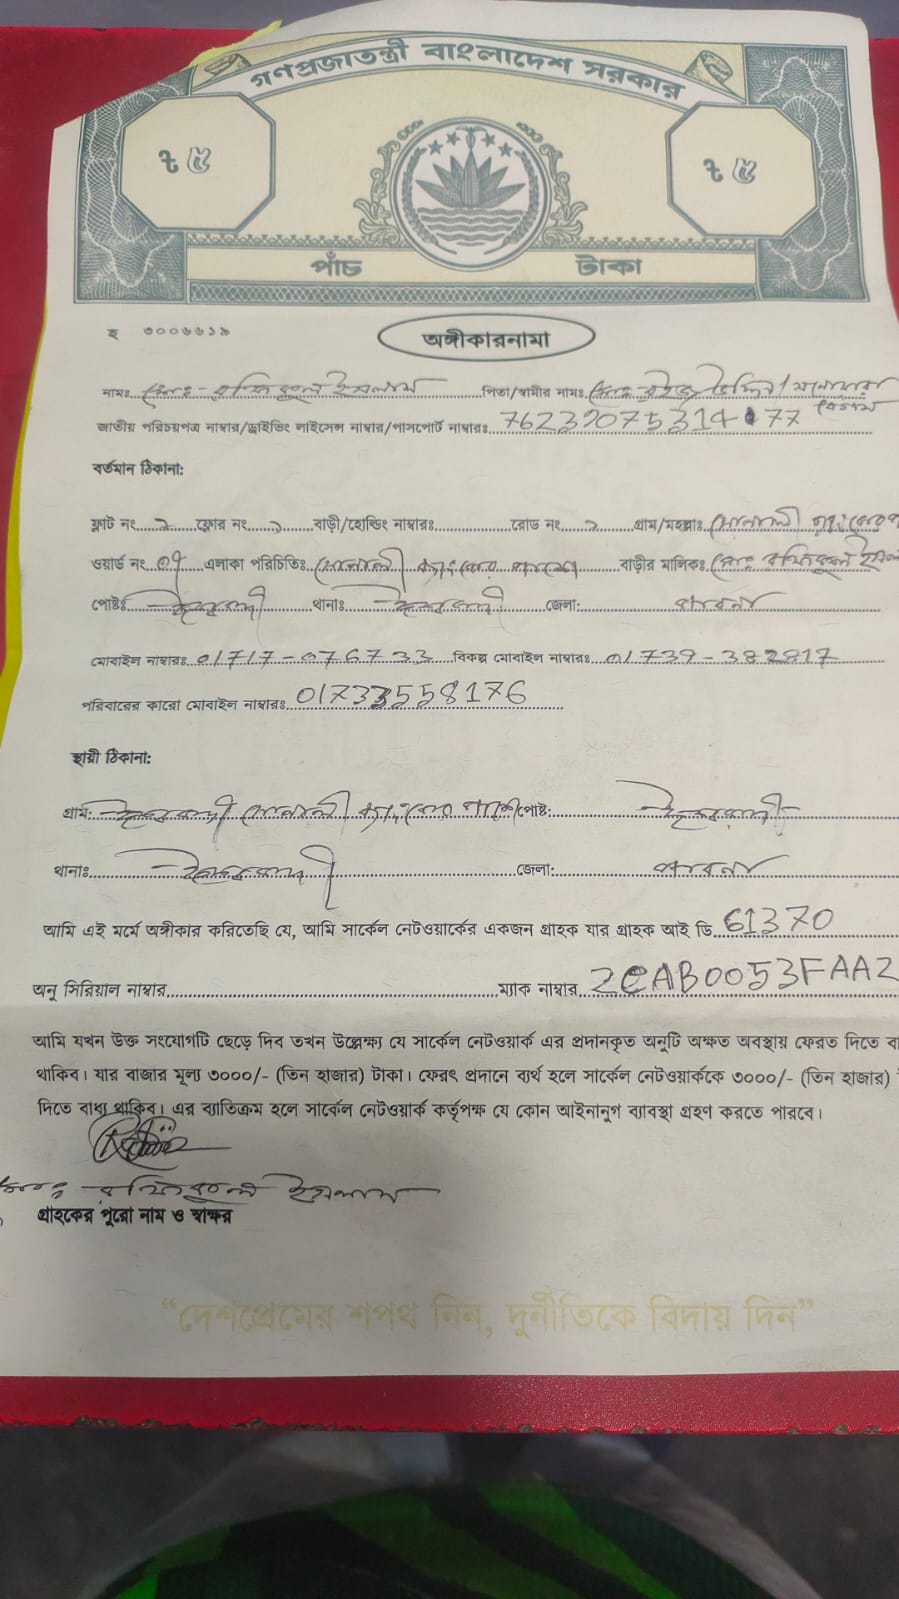 গণপ্রজাতন্ত্রী বাংলাদেশ সরকার
৳ ৫ ৳ ৫
পাঁচ টাকা
হ ৩০০৬৬১৯
অঙ্গীকারনামা
নামঃ মোঃ - রফিকুল ইসলাম পিতা/স্বামীর নামঃ মোঃ উদ্দিন/ মনোয়ারা বেগম
জাতীয় পরিচয়পত্র নাম্বার/ড্রাইভিং লাইসেন্স নাম্বার/পাসপোর্ট নাম্বারঃ
বর্তমান ঠিকানা:
ফ্লাট নং ফ্লোর নং বাড়ী/হোল্ডিং নাম্বারঃ রোড নং গ্রাম/মহল্লাঃ সোনালী
ওয়ার্ড নং ০৭ এলাকা পরিচিতিঃ সোনালী ব্যাংকের পাশে বাড়ীর মালিকঃ মোঃ রফিকুল
পোষ্টঃ ঈশ্বরদী থানাঃ ঈশ্বরদী জেলা: পাবনা
মোবাইল নাম্বারঃ 01717-076733 বিকল্প মোবাইল নাম্বারঃ 01739-382817
পরিবারের কারো মোবাইল নাম্বারঃ 01733558176
স্থায়ী ঠিকানা:
গ্রাম: ঈশ্বরদী সোনালী ব্যাংকের পাশে পোষ্ট: ঈশ্বরদী
থানাঃ ঈশ্বরদী জেলা: পাবনা
আমি এই মর্মে অঙ্গীকার করিতেছি যে, আমি সার্কেল নেটওয়ার্কের একজন গ্রাহক যার গ্রাহক আই ডি 61370
অনু সিরিয়াল নাম্বার ম্যাক নাম্বার 2CAB0053FAA2
আমি যখন উক্ত সংযোগটি ছেড়ে দিব তখন উল্লেক্ষ্য যে সার্কেল নেটওয়ার্ক এর প্রদানকৃত অনুটি অক্ষত অবস্থায় ফেরত দিতে
থাকিব। যার বাজার মূল্য ৩০০০/- (তিন হাজার) টাকা। ফেরৎ প্রদানে ব্যর্থ হলে সার্কেল নেটওয়ার্ককে ৩০০০/- (তিন হাজার)
দিতে বাধ্য থাকিব। এর ব্যাতিক্রম হলে সার্কেল নেটওয়ার্ক কর্তৃপক্ষ যে কোন আইনানুগ ব্যাবস্থা গ্রহণ করতে পারবে।
মোঃ - রফিকুল ইসলাম
গ্রাহকের পুরো নাম ও স্বাক্ষর
“দেশপ্রেমের শপথ নিন, দুর্নীতিকে বিদায় দিন”